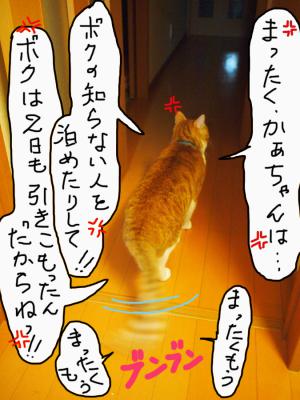 まったく、かぁちゃんは…
ボクの知らない人を
泊めたりして!!
ボクは2日も引きこもったん
だからねっ!!
まったくもう
まったく
もう
ブンブン